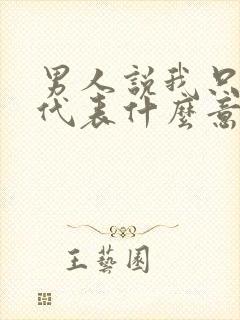 男人說我只
代表什麼意
王藝園